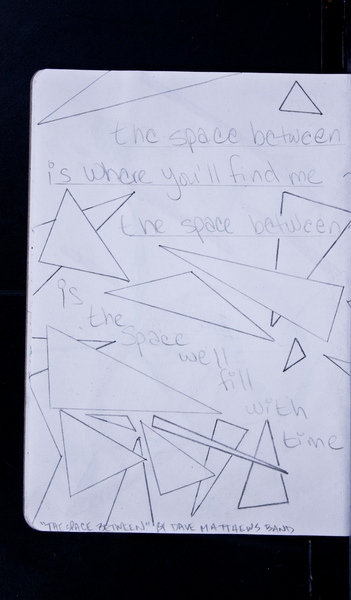 the space between
is where you'll find me -
the space between
is
the
space
we'll
fill
with
time
"THE SPACE BETWEEN" BY DAVE MATTHEWS BAND